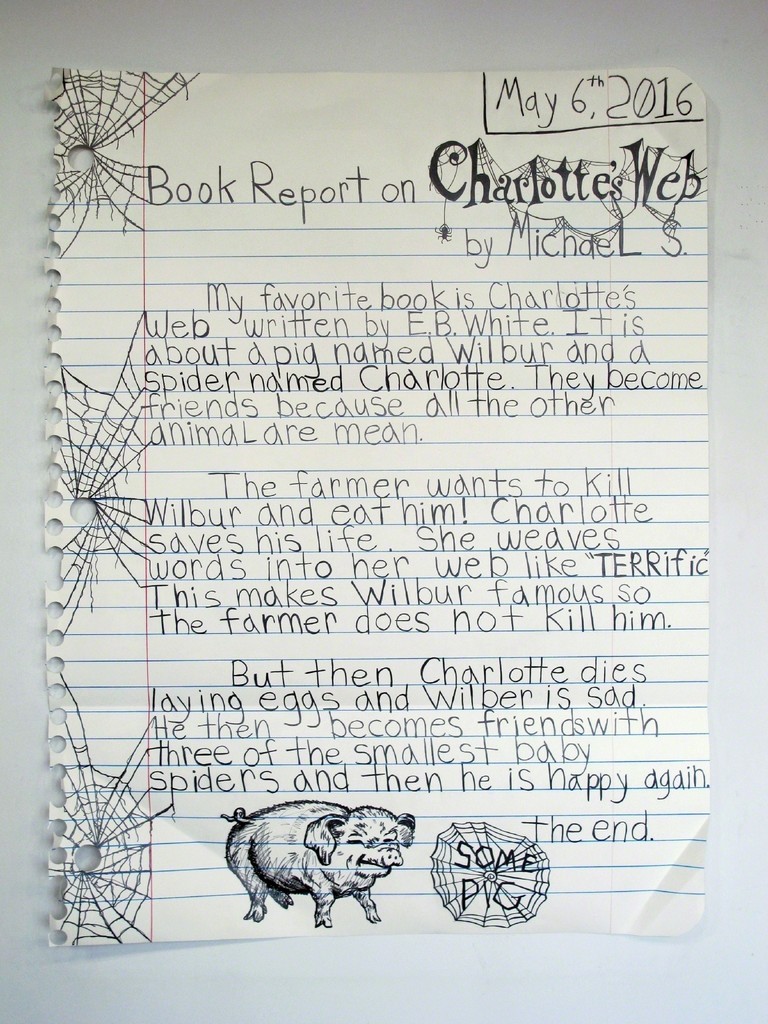 May 6,th 2016
Book Report on Charlotte's Web
by MichaeL S.
My favorite book is Charlotte's
Web written by E.B. White. It is
about a pig named Wilbur and a
spider named Charlotte. They become
friends because all the other
animaL are mean.
The farmer wants to kill
Wilbur and eat him! Charlotte
saves his life. She weaves
words into her web like "TERRific"
This makes Wilbur famous so
the farmer does not kill him.
But then Charlotte dies
laying eggs and Wilber is sad.
He then becomes friends with
three of the smallest baby
spiders and then he is happy again.
the end.
SOME
PIG